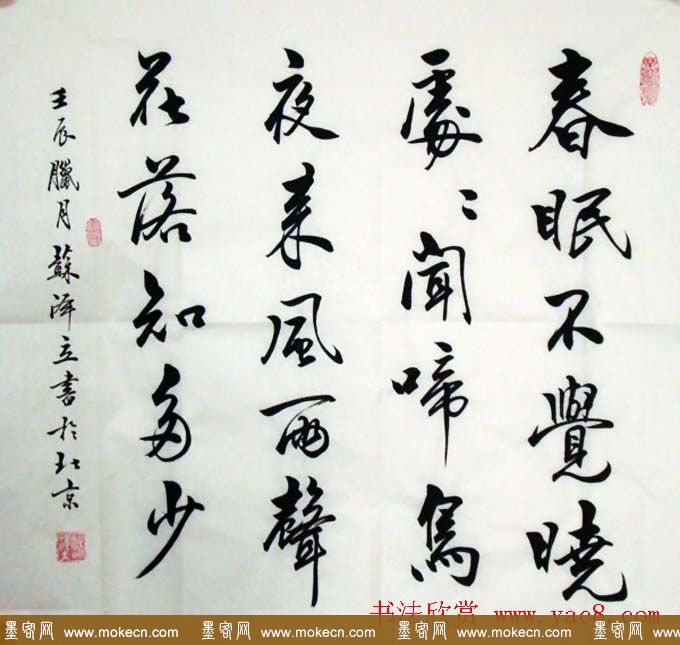 春眠不覺曉
處〻聞啼鳥
夜来風雨聲
花落知多少
壬辰臘月蘇澤立書於北京
书法欣赏 www.yac8.com
墨客网 www.mokecn.com 墨客网 www.mokecn.com 墨客网 www.mokecn.com